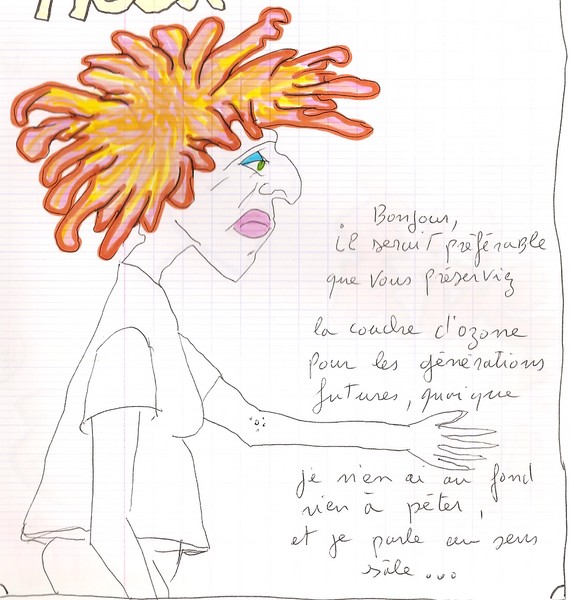 Bonjour,
il serait préférable
que vous préserviez
la couche d'ozone
pour les générations
futures, quoique
je n'en ai au fond
rien à péter,
et je parle au sens
sâle ...